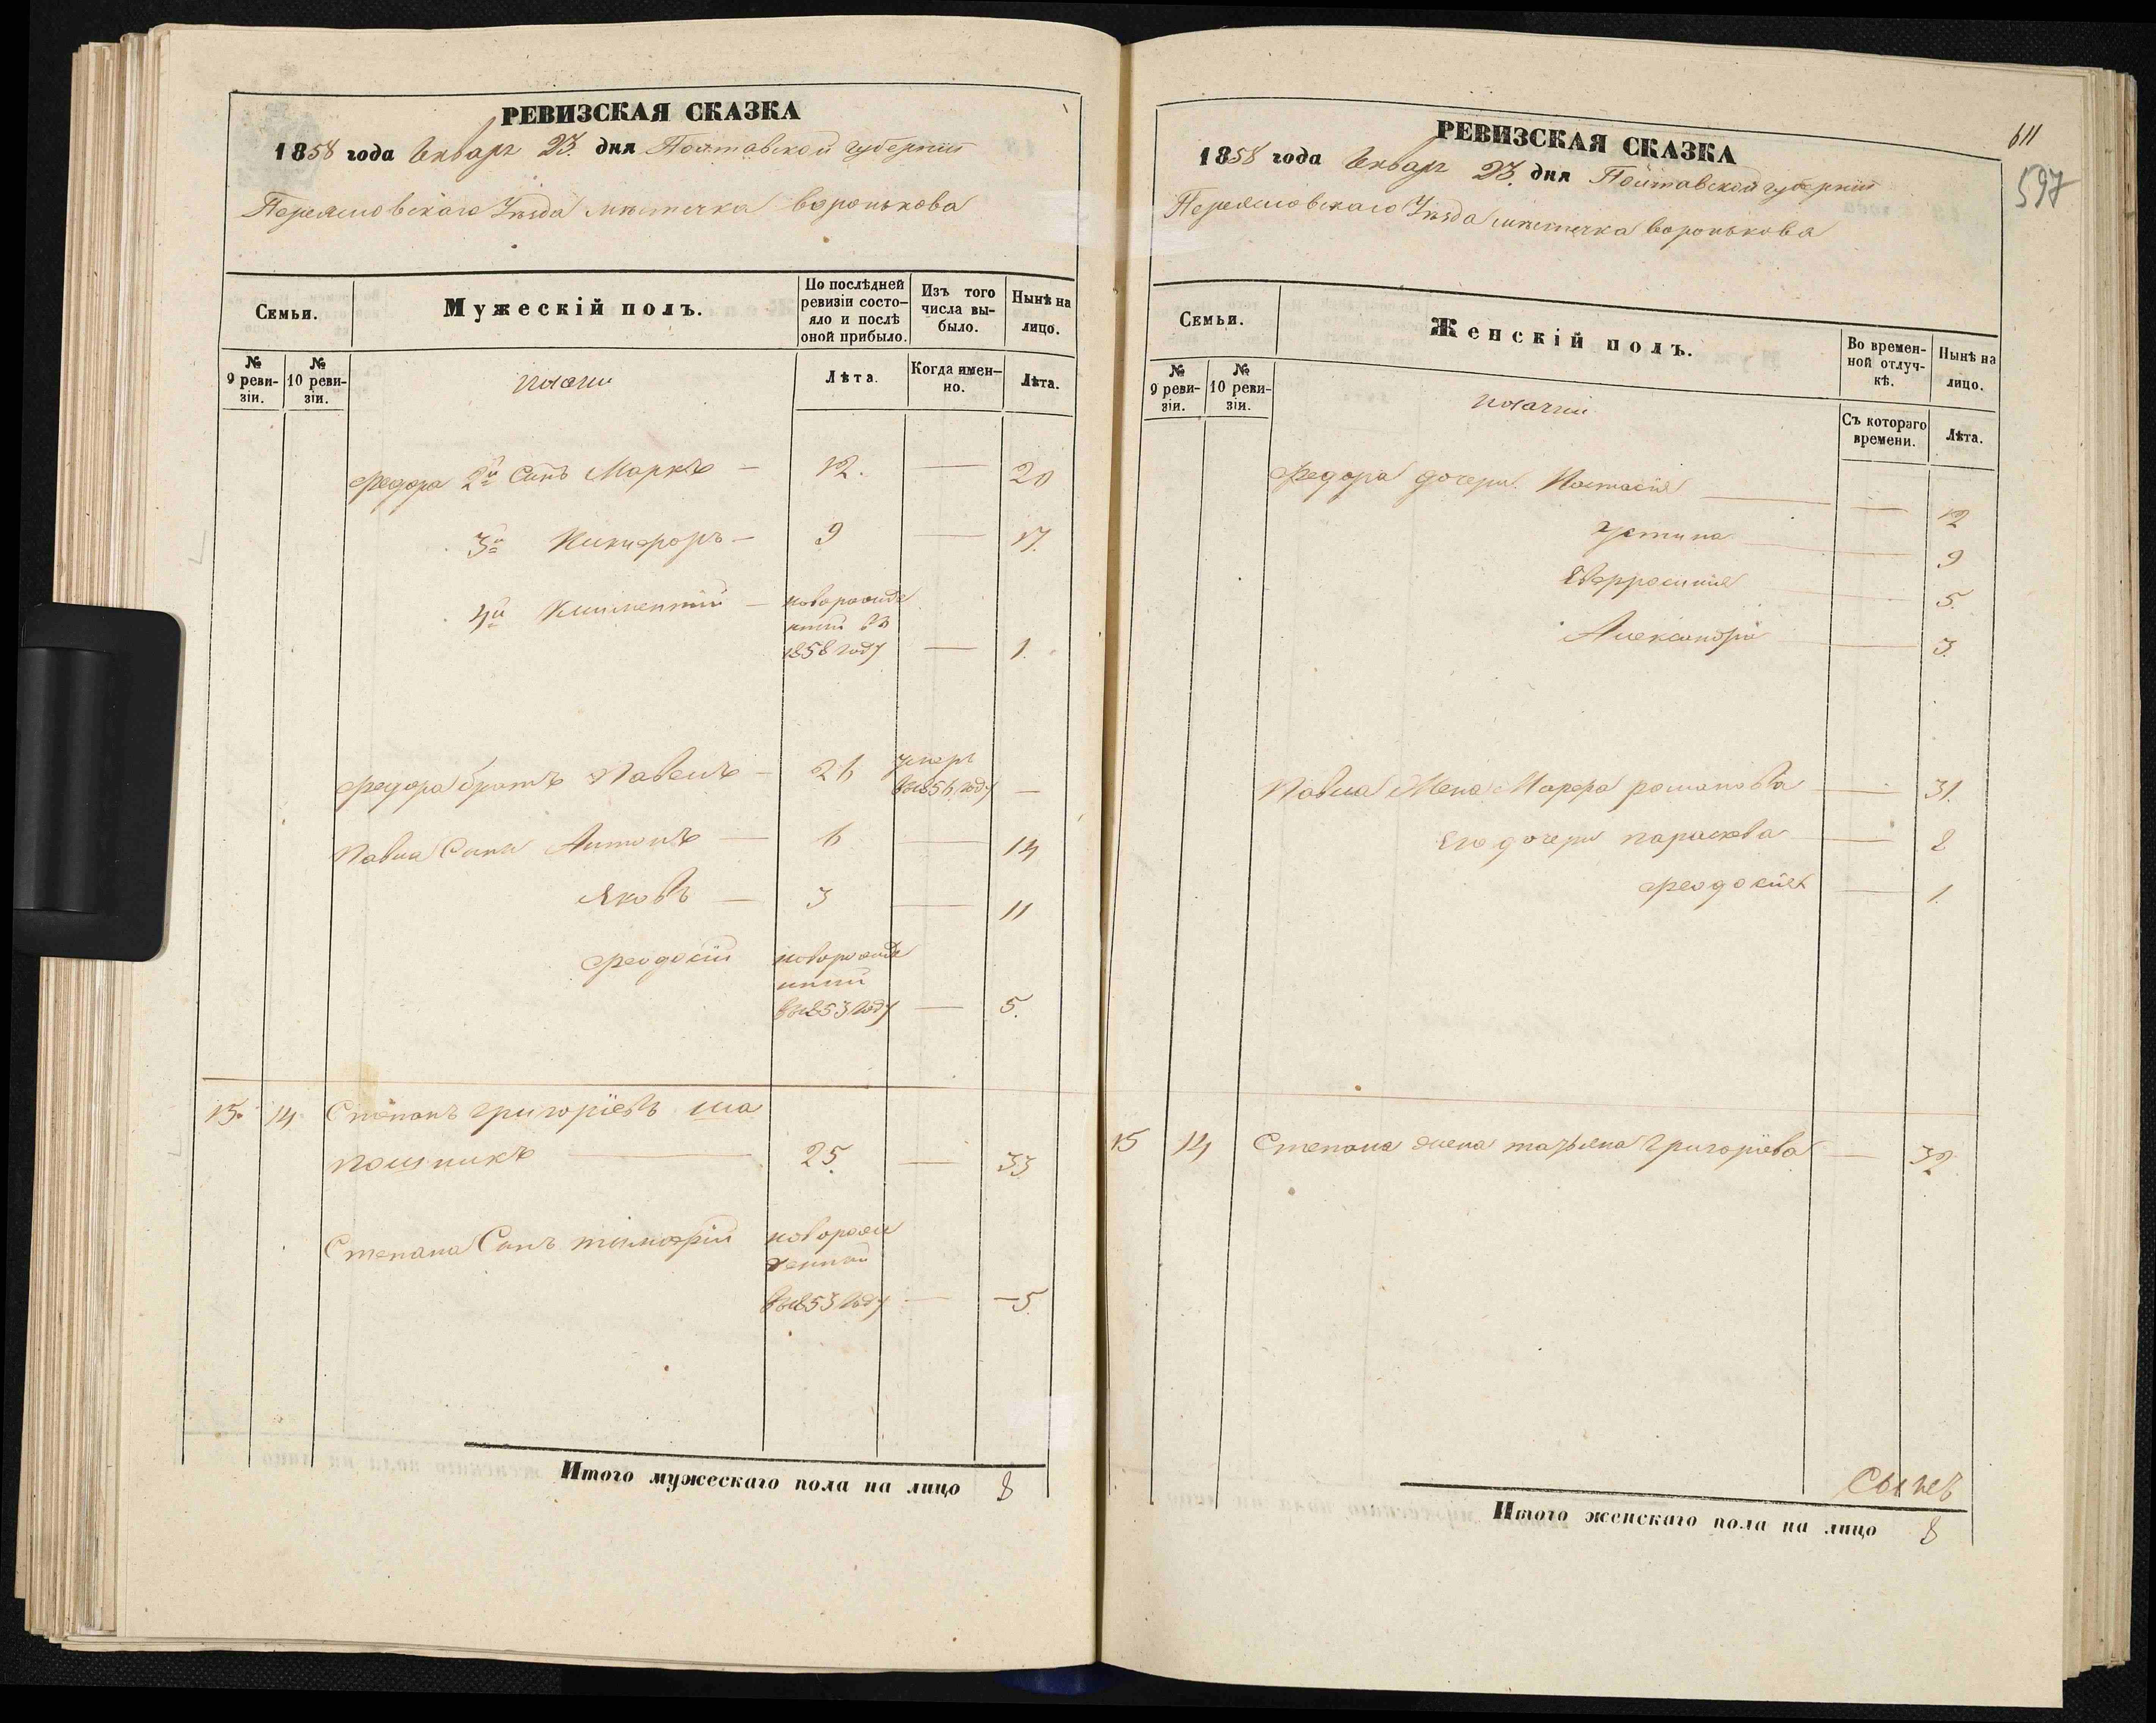 РЕВИЗСКАЯ СКАЗКА
1858 года Январь 23. дня Полтавской губернии
Переяславскаго Уезда местечка Воронькова
Семьи.
Мужескій полъ.
По послѣдней ревизіи состо-
яло и послѣ
оной прибыло.
Изъ того
числа вы-
было.
Нынѣ на
лицо.
№
9 реви-
зіи.
№
10 реви-
зіи.
Лѣта.
Когда имен-
но.
Лѣта.
Федора 2й Синъ Маркъ — 12. — 20
3й Никифоръ — 9 — 17.
4й Климентий — новорожде
нний въ
1858 году — 1.
Федора братъ Павелъ — 26 умеръ
въ 1856 году —
Павла Сини Антонъ — 6 — 14
Яковъ — 3 — 11
Феодосій новорожде
нний
въ 1853 году — 5.
15. 14 Степанъ Григорїевъ Ша
полникъ — 25. — 33
Степана Синъ тимофїй новорож
денний
въ 1853 году — 5.
Итого мужескаго пола на лицо 8
611
597
РЕВИЗСКАЯ СКАЗКА
1858 года Январь 23. дня Полтавской губернии
Переяславскаго Уезда местечка Воронькова
Семьи.
Женскій полъ.
Во времен-
ной отлуч-
кѣ.
Нынѣ на
лицо.
№
9 реви-
зіи.
№
10 реви-
зіи.
Съ котораго
времени.
Лѣта.
Федора дочери Настасія — 12
Устина — 9
Евфросинія 5.
Александра — 3.
Павла Жена Марфа романова — 31.
Его дочери параскева — 8
Феодосія — 1.
15 14 Степана жена татьяна Григорїева — 32
Итого женскаго пола на лицо 8